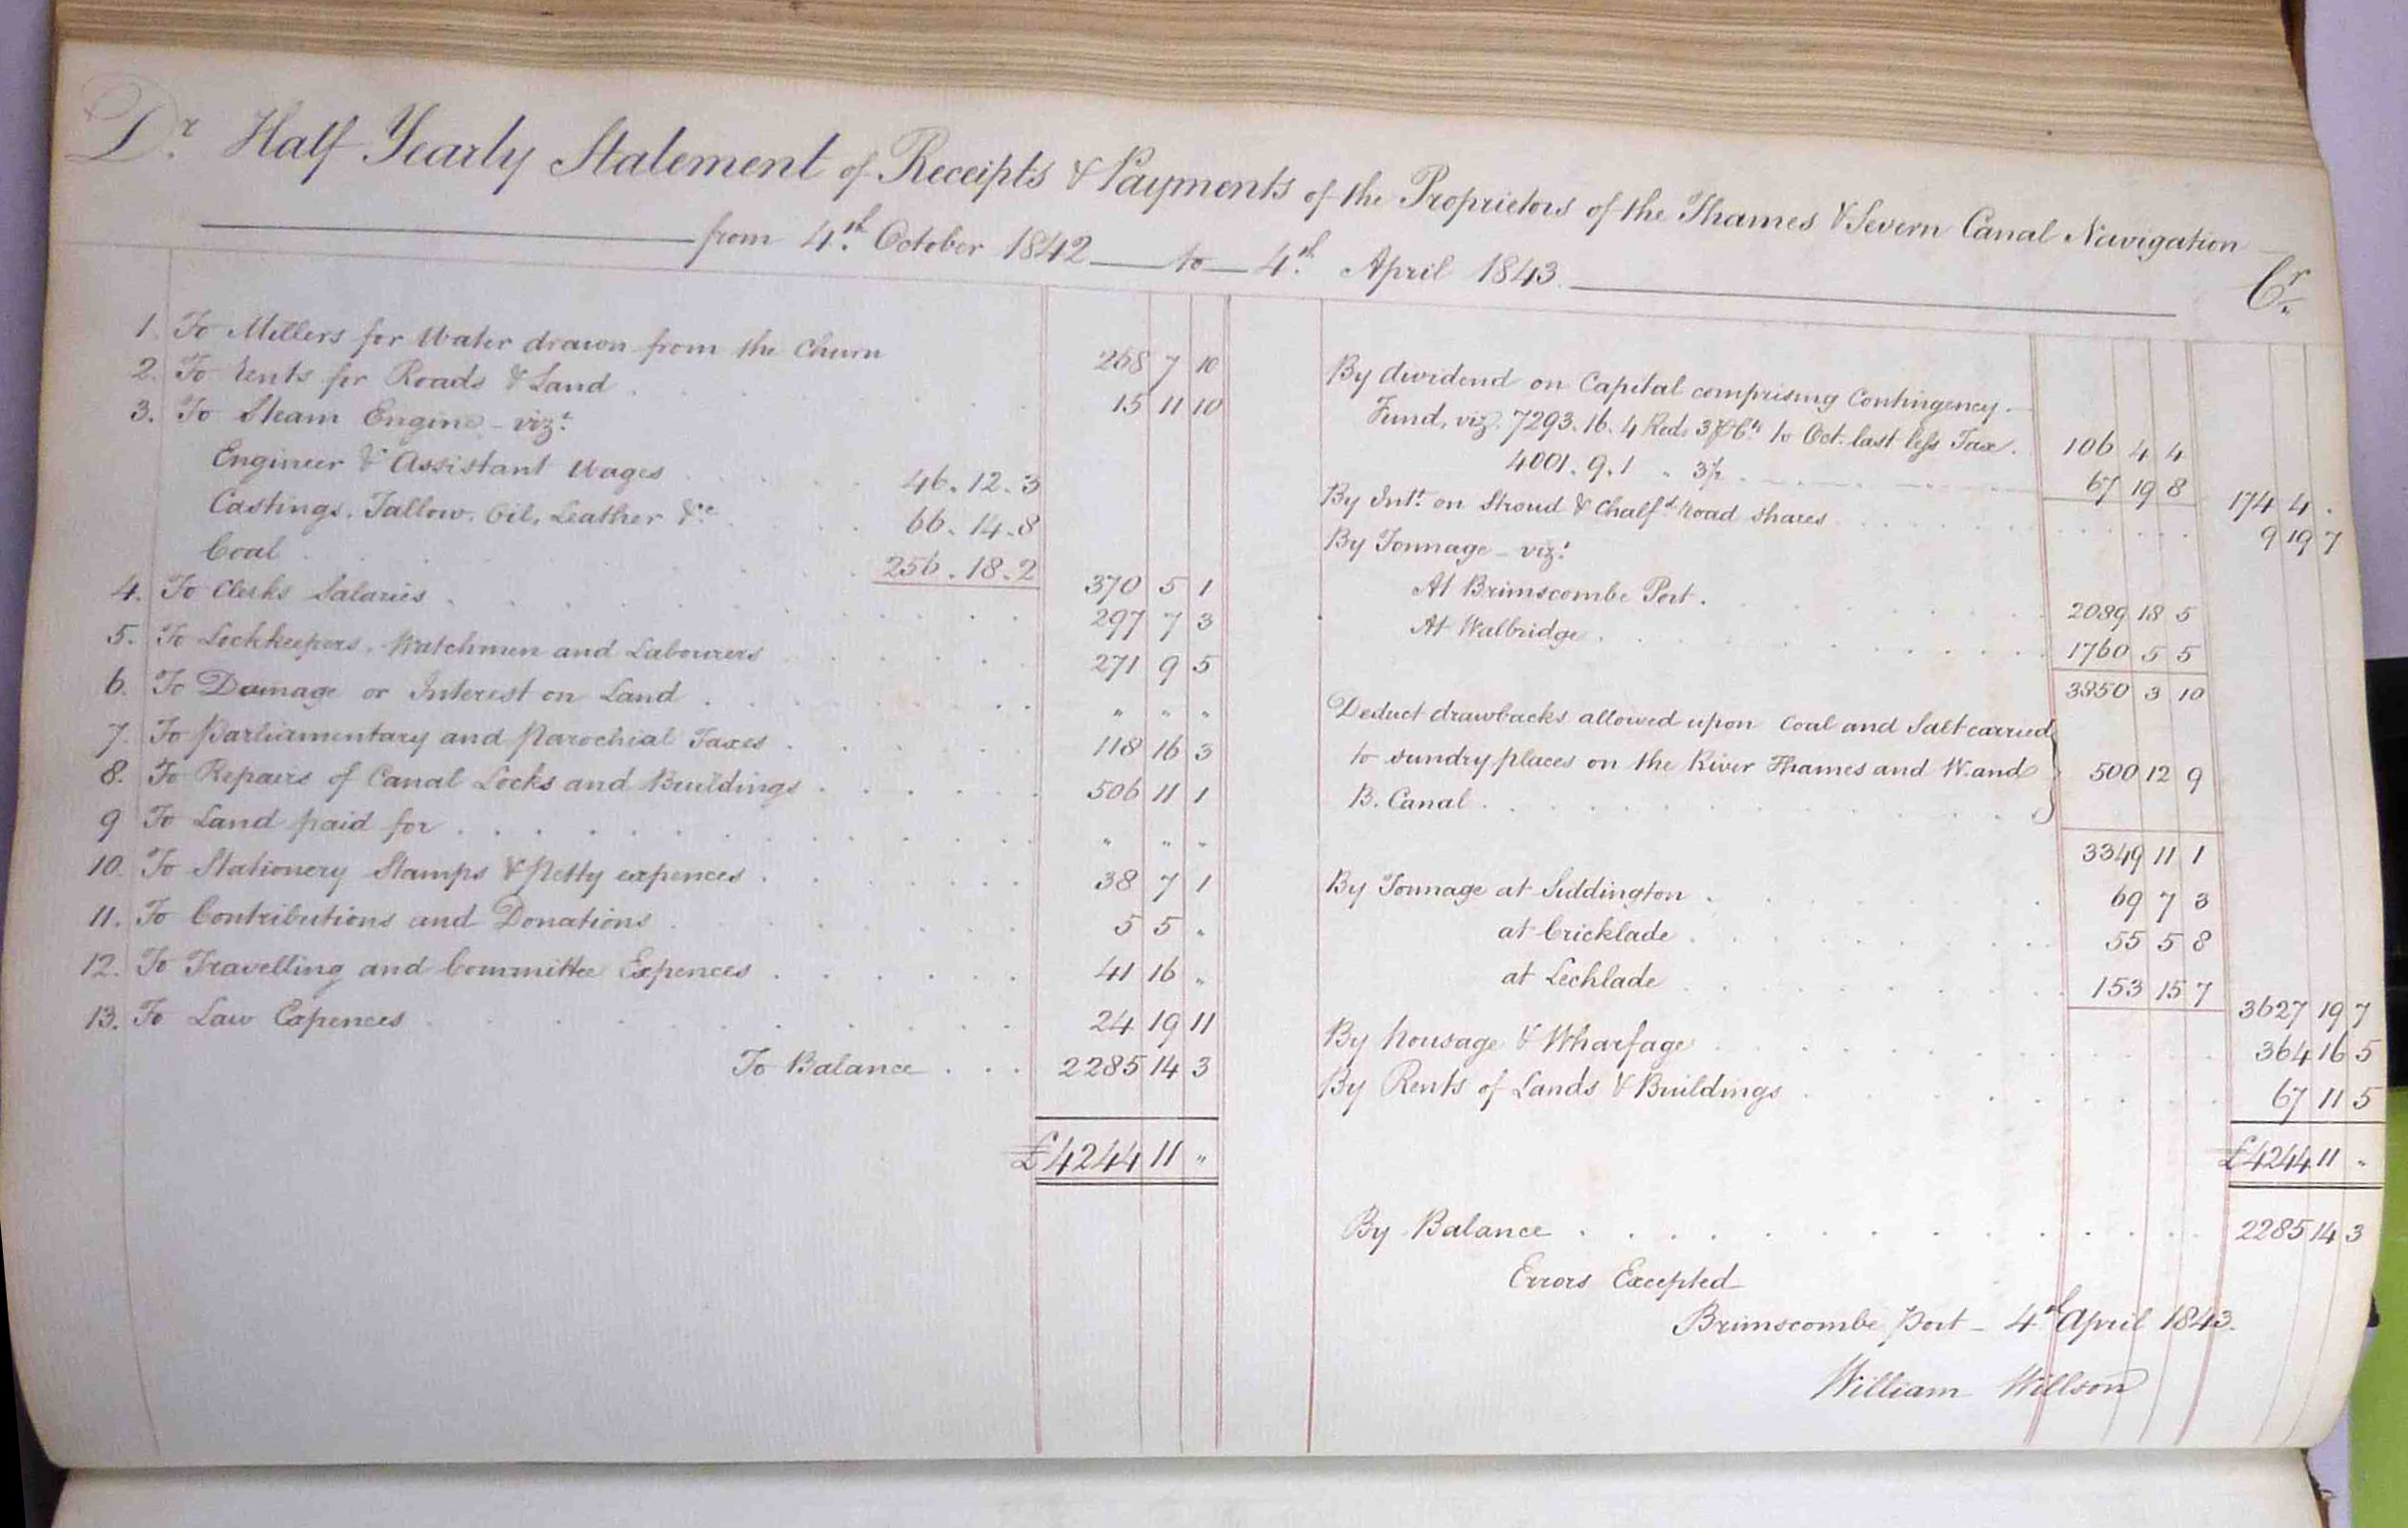 Dr. Half Yearly Statement of Receipts & Payments of the Proprietors of the Thames & Severn Canal Navigation
from 4.th October 1842 to 4.th April 1843.
Cr.
1. To Millers for Water drawn from the Churn 268 7 10
2. To Rents for Roads & Land . 15 11 10
3. To Steam Engine - vizt.
Engineer & Assistant Wages 46. 12. 3
Castings. Tallow. Oil. Leather &c. 66. 14. 8
Coal 256. 18. 2 370 5 1
4. To Clerks Salaries 297 7 3
5. To Lockkeepers, Watchmen and Labourers 271 9 5
6. To Damage or Interest on Land " " "
7. To Parliamentary and Parochial Taxes 118 16 3
8. To Repairs of Canal Locks and Buildings 506 11 1
9 To Land paid for " " "
10. To Stationery Stamps & Petty expences 38 7 1
11. To Contributions and Donations 5 5 "
12. To Travelling and Committee Expences 41 16 "
13. To Law Expences 24 19 11
To Balance 2285 14 3
£4244 11 "
By dividend on Capital comprising Contingency
Fund, viz. 7293. 16. 4 Red. 3 P Ct. to Oct. last less Tax. 106 4 4
4001. 9. 1 " 3½ 67 19 8 174 4 .
By Intt. on Stroud & Chalfd. road shares 9 19 7
By Tonnage - vizt.
At Brimscombe Port. 2089 18 5
At Walbridge 1760 5 5
3850 3 10
Deduct drawbacks allowed upon Coal and Salt carried
to sundry places on the River Thames and W. and 500 12 9
B. Canal
3349 11 1
By Tonnage at Siddington 69 7 3
at Cricklade 55 5 8
at Lechlade 153 15 7 3627 19 7
By housage & Wharfage 364 16 5
By Rents of Lands & Buildings 67 11 5
£4244 11 "
By Balance 2285 14 3
Errors Excepted
Brimscombe Port - 4th April 1843.
William Willson